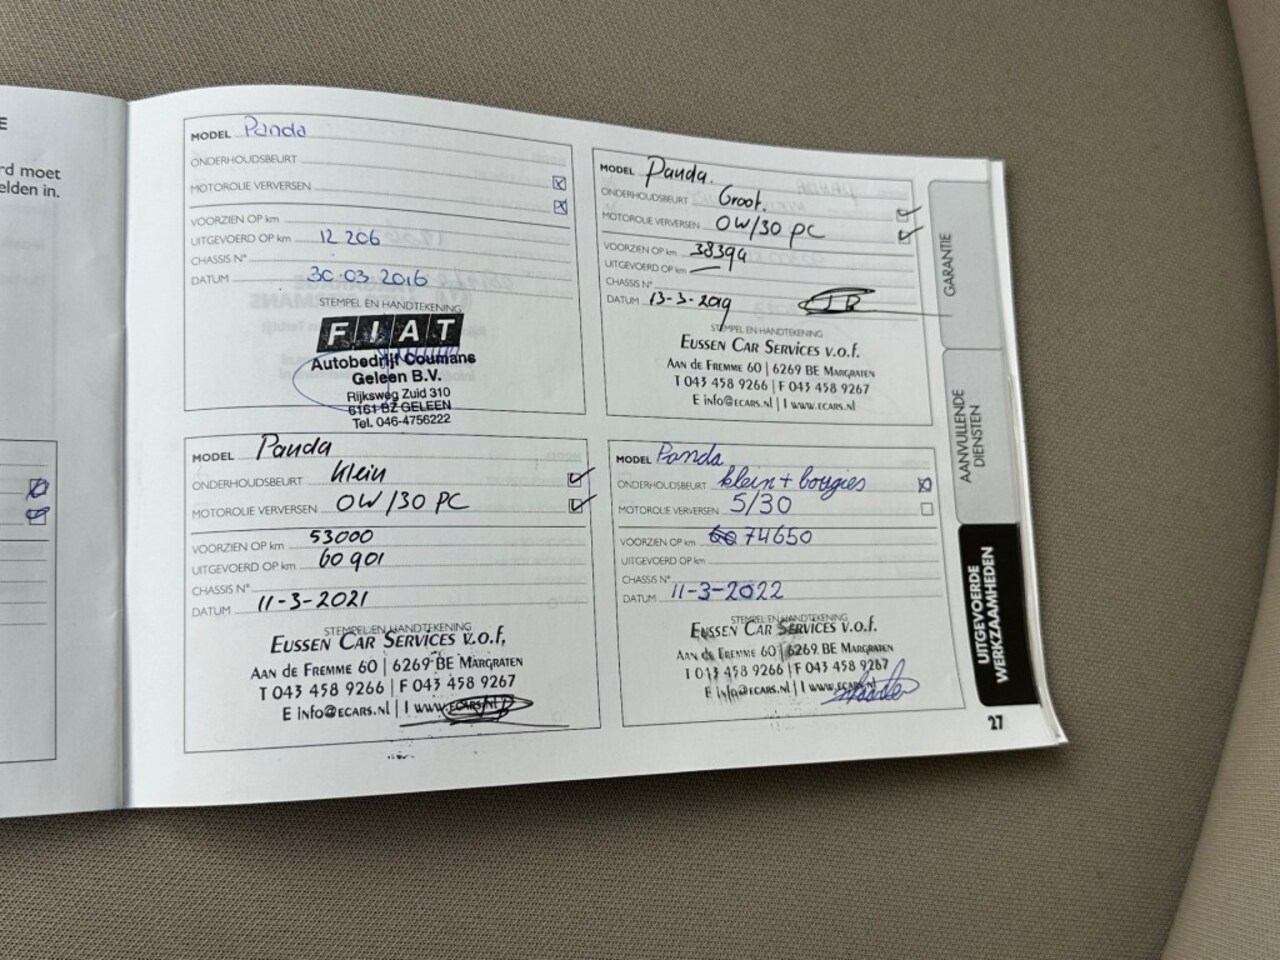 E
rd moet
elden in.
MODEL Panda
ONDERHOUDSBEURT
MOTOROLIE VERVERSEN
VOORZIEN OP km
UITGEVOERD OP km 12 206
CHASSIS N°
DATUM 30-03-2016
STEMPEL EN HANDTEKENING
FIAT
Autobedrijf Coumans
Geleen B.V.
Rijksweg Zuid 310
6161 BZ GELEEN
Tel. 046-4756222
MODEL Panda.
ONDERHOUDSBEURT Groot.
MOTOROLIE VERVERSEN 0W/30 PC
VOORZIEN OP km 38394
UITGEVOERD OP km —
CHASSIS N°
DATUM 13-3-2019
STEMPEL EN HANDTEKENING
EUSSEN CAR SERVICES v.o.f.
AAN de FREMME 60 | 6269 BE MARGRATEN
T 043 458 9266 | F 043 458 9267
E info@ECARS.nl | I www.ECARS.nl
MODEL Panda
ONDERHOUDSBEURT klein
MOTOROLIE VERVERSEN 0W/30 PC
VOORZIEN OP km 53000
UITGEVOERD OP km 60901
CHASSIS N°
DATUM 11-3-2021
STEMPEL EN HANDTEKENING
EUSSEN CAR SERVICES v.o.f.
AAN de FREMME 60 | 6269 BE MARGRATEN
T 043 458 9266 | F 043 458 9267
E info@ECARS.nl | I www.ECARS.nl
MODEL Panda
ONDERHOUDSBEURT klein + bougies
MOTOROLIE VERVERSEN 5/30
VOORZIEN OP km 74650
UITGEVOERD OP km
CHASSIS N°
DATUM 11-3-2022
STEMPEL EN HANDTEKENING
EUSSEN CAR SERVICES v.o.f.
AAN de FREMME 60 | 6269 BE MARGRATEN
T 043 458 9266 | F 043 458 9267
E info@ECARS.nl | I www.ECARS.nl
GARANTIE
AANVULLENDE
DIENSTEN
UITGEVOERDE
WERKZAAMHEDEN
27